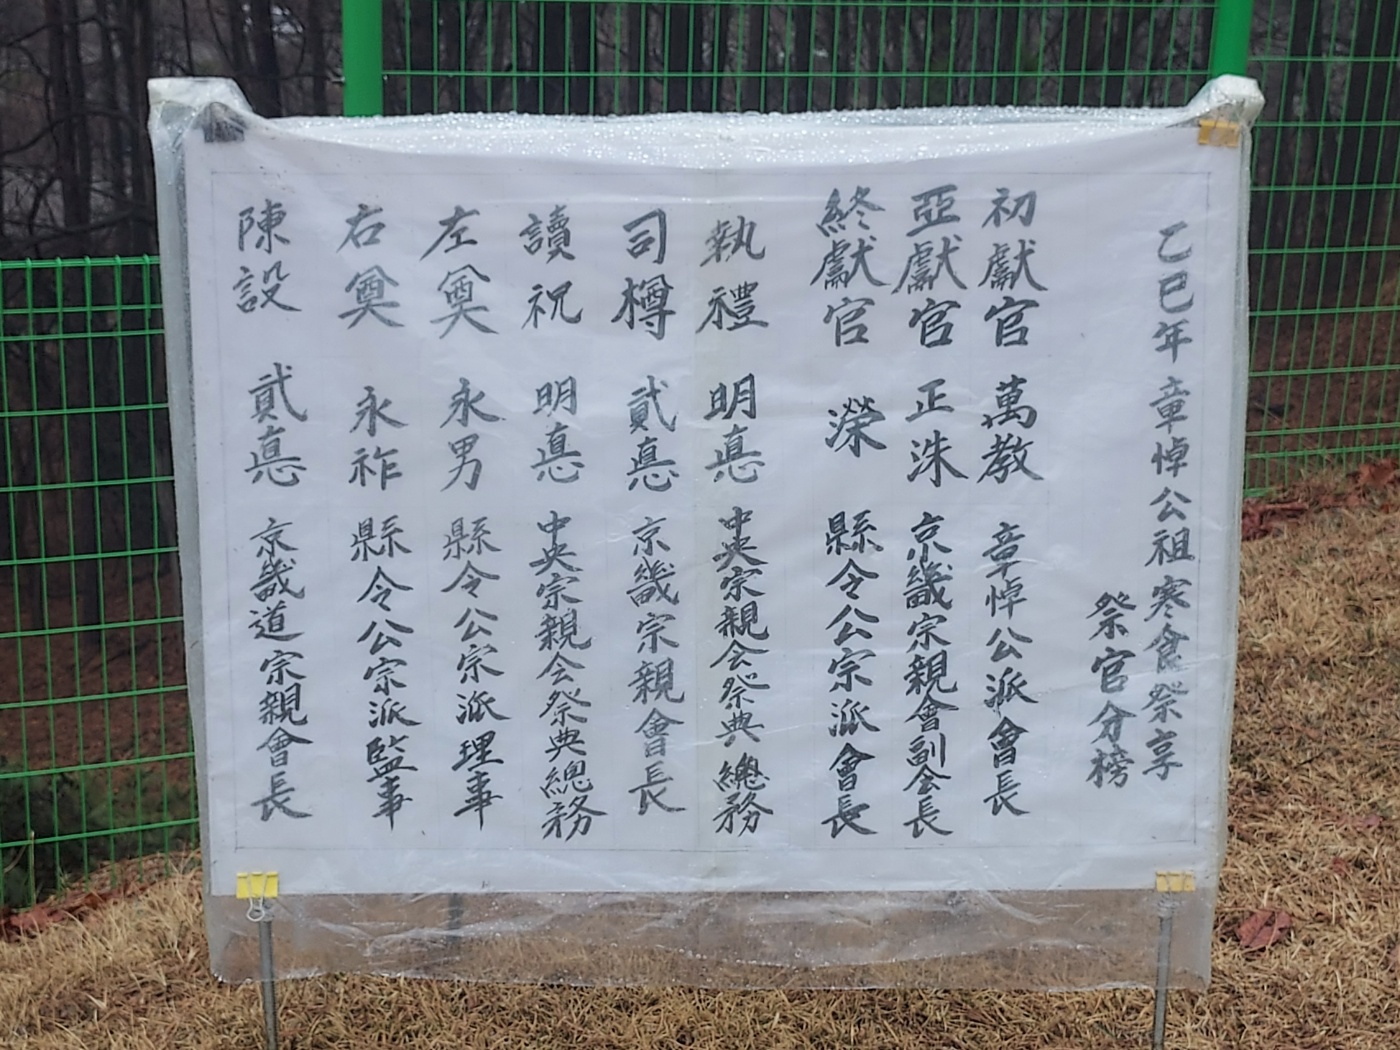 乙巳年 章悼公祖寒食祭享
祭官分榜
初獻官 萬教 章悼公派會長
亞獻官 正洙 京畿宗親會副会長
終獻官 濚 縣令公宗派會長
執禮 明悳 中央宗親会祭典總務
司樽 貳悳 京畿宗親會長
讀祝 明悳 中央宗親会祭典總務
左奠 永男 縣令公宗派理事
右奠 永祚 縣令公宗派監事
陳設 貳悳 京畿道宗親會長